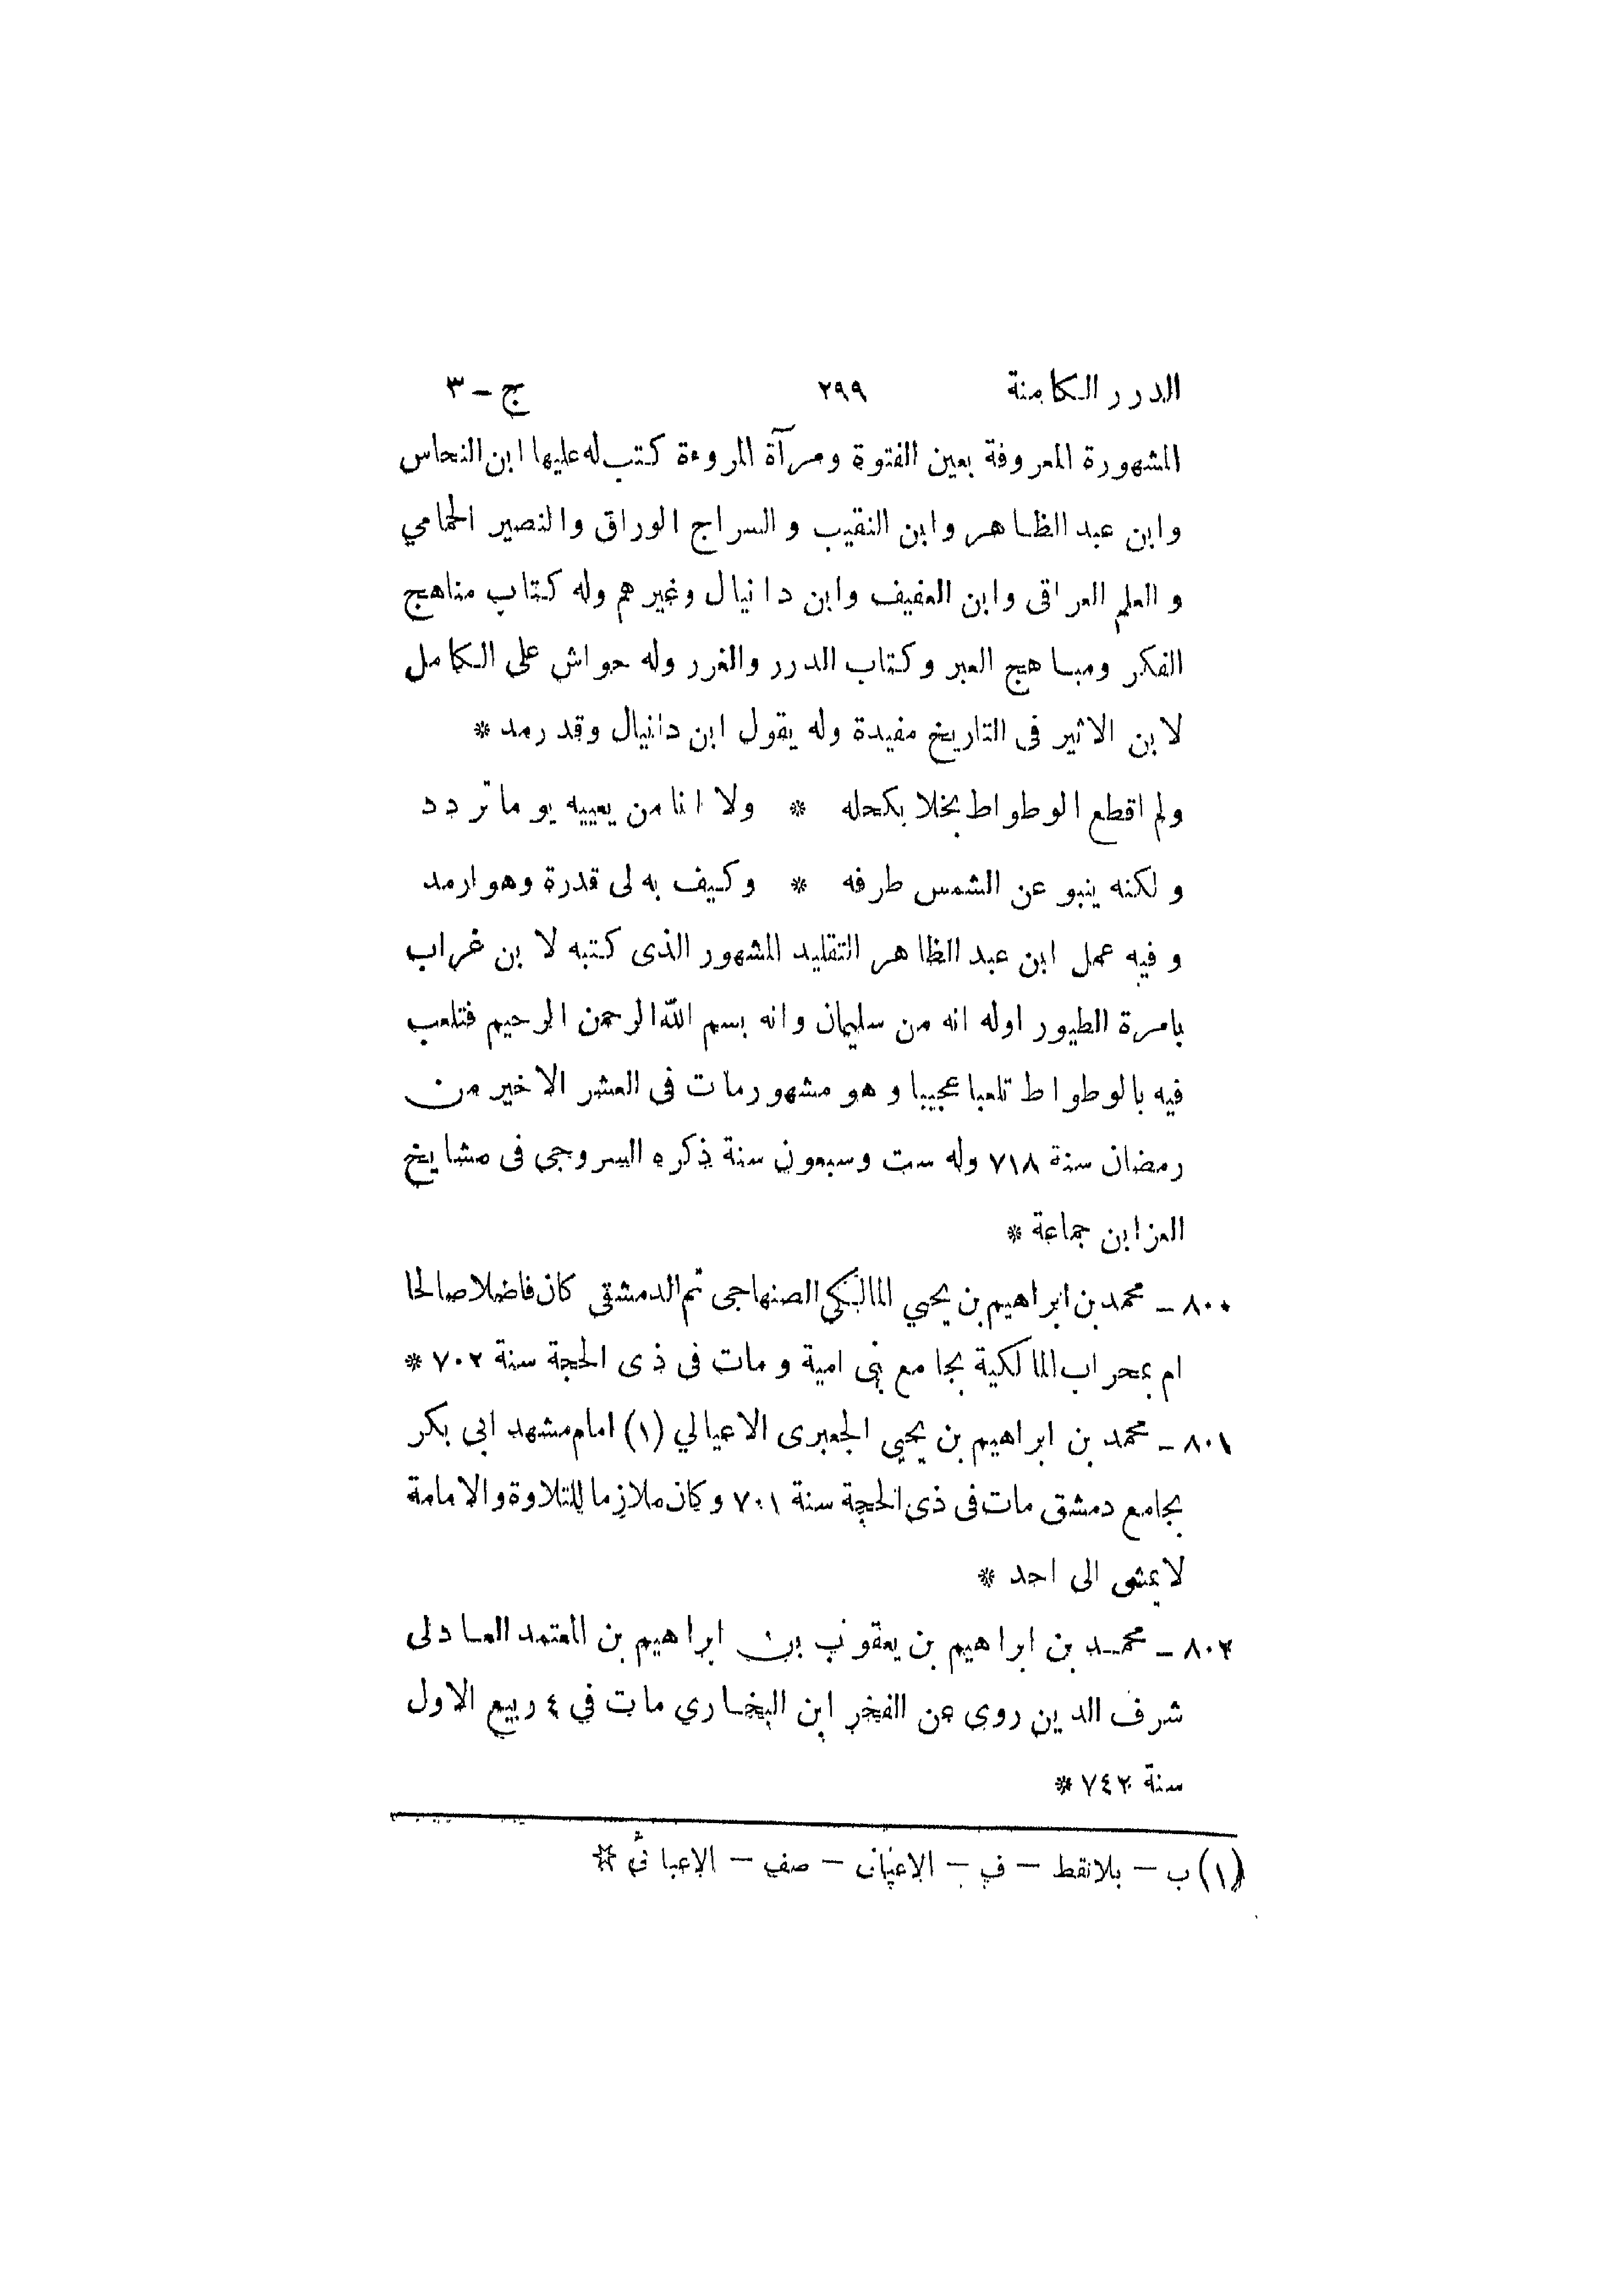 الدرر الكامنة ٢٩٩ ج - ٣
المشهورة المعروفة بعين الفتوة ومرآة المروءة كتب له عليها ابن النحاس
وابن عبد الظاهر وابن النقيب والسراج الوراق والنصير الحمامي
والعلم العراقى وابن العفيف وابن دانيال وغيرهم وله كتاب مناهج
الفكر ومباهج العبر وكتاب الدرر والغرر وله حواش على الكامل
لابن الاثير فى التاريخ مفيدة وله يقول ابن دانيال وقد رمد *
ولم اقطع الوطواط بخلا بكحله * ولا انا من يعييه يوما تردد
ولكنه ينبو عن الشمس طرفه * وكيف به لى قدرة وهو ارمد
وفيه عمل ابن عبد الظاهر التقليد المشهور الذى كتبه لابن غراب
بامرة الطيور اوله انه من سليمان وانه بسم الله الرحمن الرحيم فتلعب
فيه بالوطواط تلعبا عجيبا وهو مشهور مات فى العشر الاخير من
رمضان سنة ٧١٨ وله ست وسبعون سنة ذكره السروجى فى مشايخ
العز ابن جماعة *
٨٠٠ - محمد بن ابراهيم بن يحيي المالكي الصنهاجى ثم الدمشقى كان فاضلا صالحا
ام بمحراب المالكية بجامع بنى امية ومات فى ذى الحجة سنة ٧٠٢ *
٨٠١ - محمد بن ابراهيم بن يحيي الجعبرى الاعيالي (١) امام مشهد ابى بكر
بجامع دمشق مات فى ذى الحجة سنة ٧٠١ وكان ملازما للتلاوة والامامة
لا يمشى الى احد *
٨٠٢ - محمد بن ابراهيم بن يعقوب بن ابراهيم بن المعتمد العادلى
شرف الدين روى عن الفخر ابن البخاري مات في ٤ ربيع الاول
سنة ٧٤٢ *
(١) ب - بلا نقط - ف - - صف - *